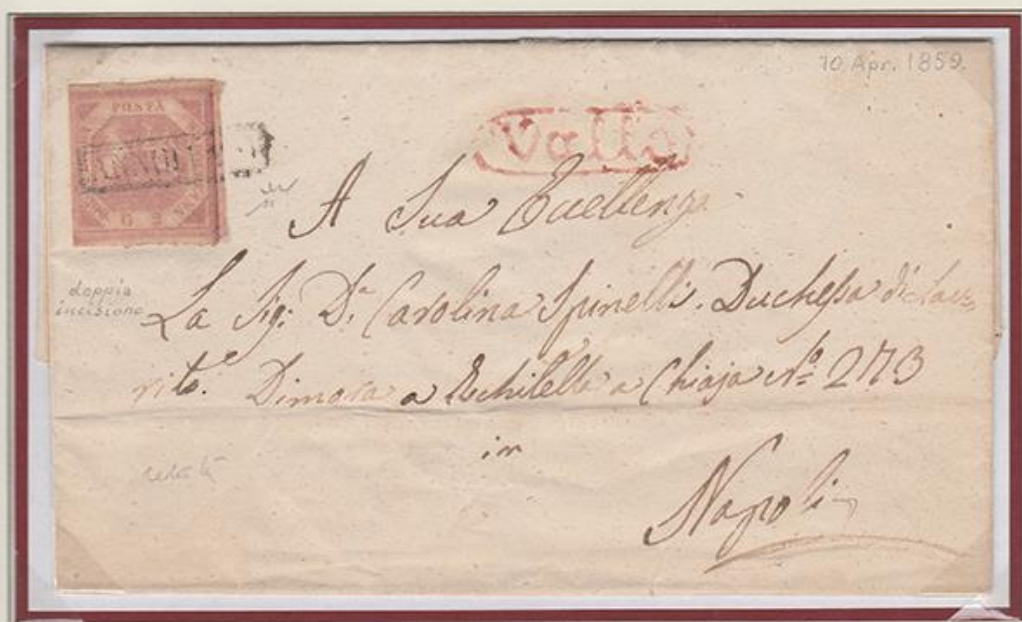 10 Apr. 1859.
POSTA
G 2
ANNULLATO
Vallo
A Sua Eccellenza
doppia
incisione
La Sig: D.ª Carolina Spinelli. Duchessa di Lau=
rito. Dimora a Chiaja No: 273
in
Napoli